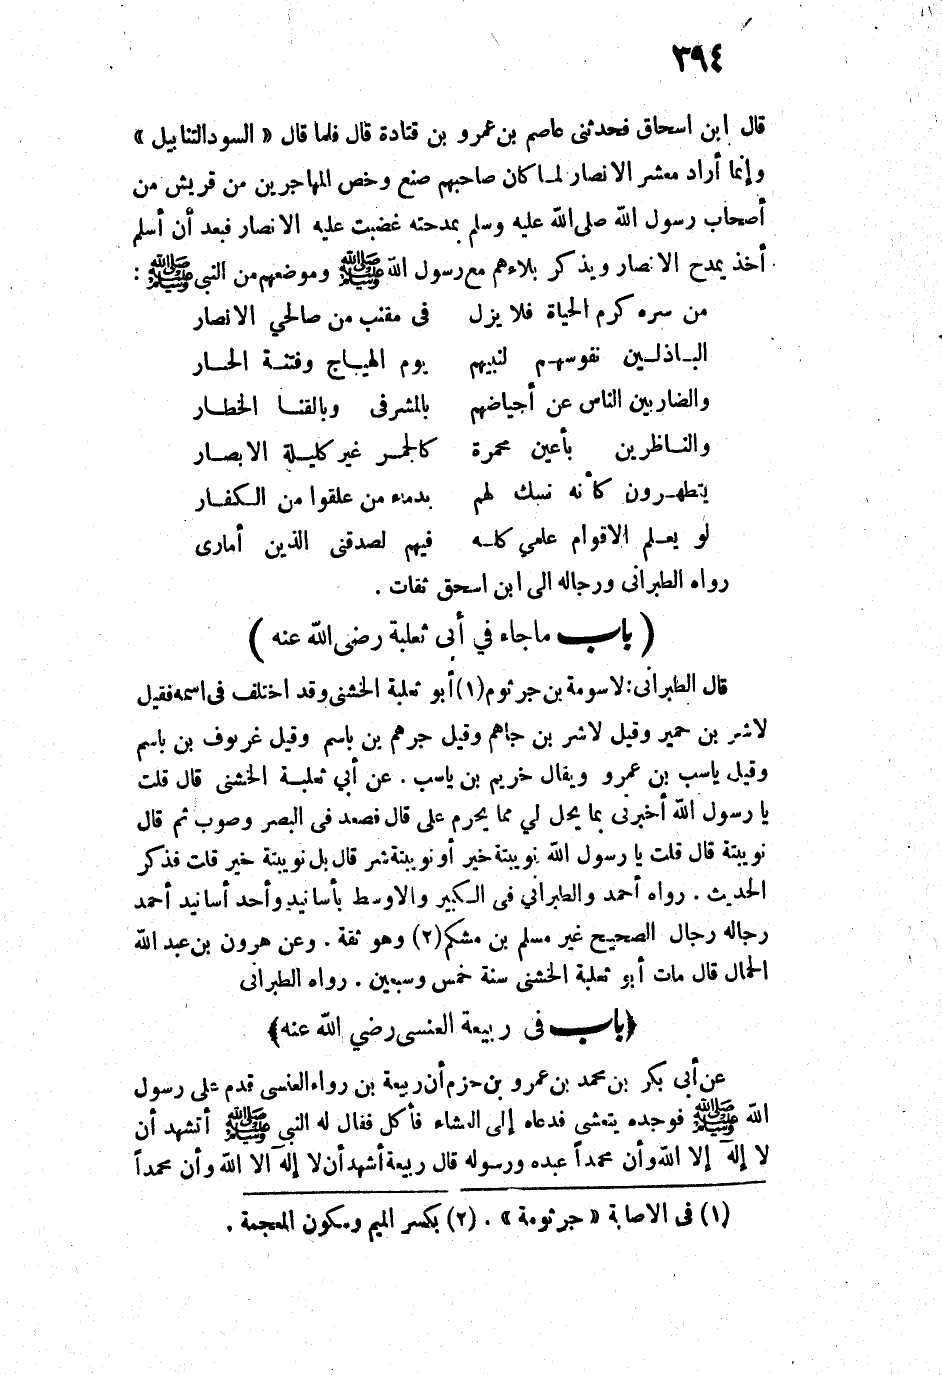 ٣٩٤
قال ابن اسحاق فحدثنى عاصم بن عمرو بن قتادة قال فلما قال « السود التنابيل »
وإنما أراد معشر الانصار لما كان صاحبهم صنع وخص المهاجرين من قريش من
أصحاب رسول الله صلى الله عليه وسلم بمدحته غضبت عليه الانصار فبعد أن أسلم
أخذ يمدح الانصار ويذكر بلاءهم مع رسول الله ﷺ وموضعهم من النبي ﷺ :
من سره كرم الحياة فلا يزل فى مقنب من صالحي الانصار
الباذلين نفوسهم لنبيهم يوم الهياج وفتنة الحار
والضاربين الناس عن أحياضهم بالمشرفى وبالقنا الخطار
والناظرين بأعين محمرة كالجمر غير كليلة الابصار
يتطهرون كأنه نسك لهم بدماء من علقوا من الكفار
لو يعلم الاقوام علمي كله فيهم لصدقنى الذين أمارى
رواه الطبرانى ورجاله الى ابن اسحق ثقات .
( باب ماجاء في أبى ثعلبة رضى الله عنه )
قال الطبرانى: لاسومة بن جرثوم(١) أبو ثعلبة الخشنى وقد اختلف فى اسمه فقيل
لاشر بن حمير وقيل لاشر بن جاهم وقيل جرهم بن باسم وقيل غرنوف بن باسم
وقيل ياسب بن عمرو ويقال خريم بن ياسب . عن أبي ثعلبة الخشنى قال قلت
يا رسول الله أخبرنى بما يحل لي مما يحرم على قال فصعد فى البصر وصوب ثم قال
نويبتة قال قلت يا رسول الله نويبتة خير أو نويبتة شر قال بل نويبتة خير قلت فذكر
الحديث . رواه أحمد والطبراني فى الكبير والاوسط بأسانيد وأحد أسانيد أحمد
رجاله رجال الصحيح غير مسلم بن مشكم(٢) وهو ثقة . وعن هرون بن عبد الله
الحمال قال مات أبو ثعلبة الخشنى سنة خمس وسبعين . رواه الطبرانى
﴿ باب فى ربيعة العنسى رضي الله عنه ﴾
عن أبى بكر بن محمد بن عمرو بن حزم أن ربيعة بن رواء العنسى قدم على رسول
الله ﷺ فوجده يتعشى فدعاه إلى العشاء فأكل فقال له النبي ﷺ أتشهد أن
لا إله إلا الله وأن محمداً عبده ورسوله قال ربيعة أشهد أن لا إله الا الله وأن محمداً
(١) فى الاصابة « جرثومة » . (٢) بكسر الميم وسكون المعجمة .